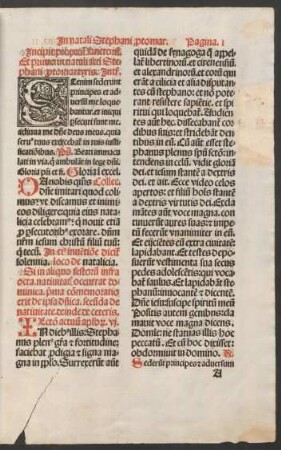 In natali Stephani ptomar. Pagina. I
Incipit ppriũ sanctorũ.
Et primo in natali scti Ste-
phani ptomartyris. Intr.
Etenim sederunt
principes et ad-
versũ me loque-
bantur. et iniqui
psecuti sunt me.
adiuva me dñe deus meus. quia
servus tuus exercebat in tuis iusti-
ficatiõibus. Ps. Beati immacu-
lati in via. q̃ ambulãt in lege dñi.
Gloria pr̃i et fi. Gloria ĩ excel.
DA nobis q̃s dñe Collec.
imitari quod colimus:
vt discamus et inimi-
cos diligere. quia eius nata-
licia celebram9: q̃ nouit etiã
p psecutorib9 exorare. dñum
nr̃m iesum christũ filiũ tuũ:
q̃ tecũ. In eius inuẽtiõe dicit̃
solennia. loco de natalicia.
Si in aliquo festorũ infra
octa. natiuitat. occurrat do-
minica. prima cõmemoratio
erit de ipsa dñica. secũda de
natiuitate. et inde de ceteris.
Lectio actuũ aplox. vj.
IN diebus illis: Stepha-
nus plen9 gr̃a et fortitudine:
faciebat pdigia et signa magna
in pplo. Surrexerũt aũt
quidã de synagoga q̃ appel-
lat̃ libertinorũ. et cirenensiũ.
et alexandrinorũ. et eorũ qui
erãt a cilicia et asia: disputantes
cũ stephano: et nõ poterant
resistere sapiẽtie. et spiritui
qui loquebat̃. Audientes
aũt hec. dissecabant̃ cordibus
suis: et stridebãt dentibus
in eũ. Cũ aũt esset stephanus
plenus spũ sancto: intendens
in celũ. vidit gloriã dei.
et iesum stantẽ a dextris
dei. et ait. Ecce video celos
apertos: et filiũ hoĩs stantẽ
a dextris virtutis dei. Exclamãtes
aũt voce magna. continuerũt
aures suas: et impetũ
fecerũt vnanimiter in eũ.
Et eijciẽtes eũ extra ciuitatẽ:
lapidabant. Et testes deposuerũt
vestimenta sua secus
pedes adolescẽtis: qui vocabat̃
saulus. Et lapidabãt stephanũ
inuocantẽ et dicentẽ.
Dñe iesu suscipe spiritũ meũ
Positis autem genibus: clamauit
voce magna dicens.
Dñe ne statuas illis hoc
peccatũ. Et cũ hoc dixisset:
obdormiuit in domino. R.
Sederũt principes et aduersum
A